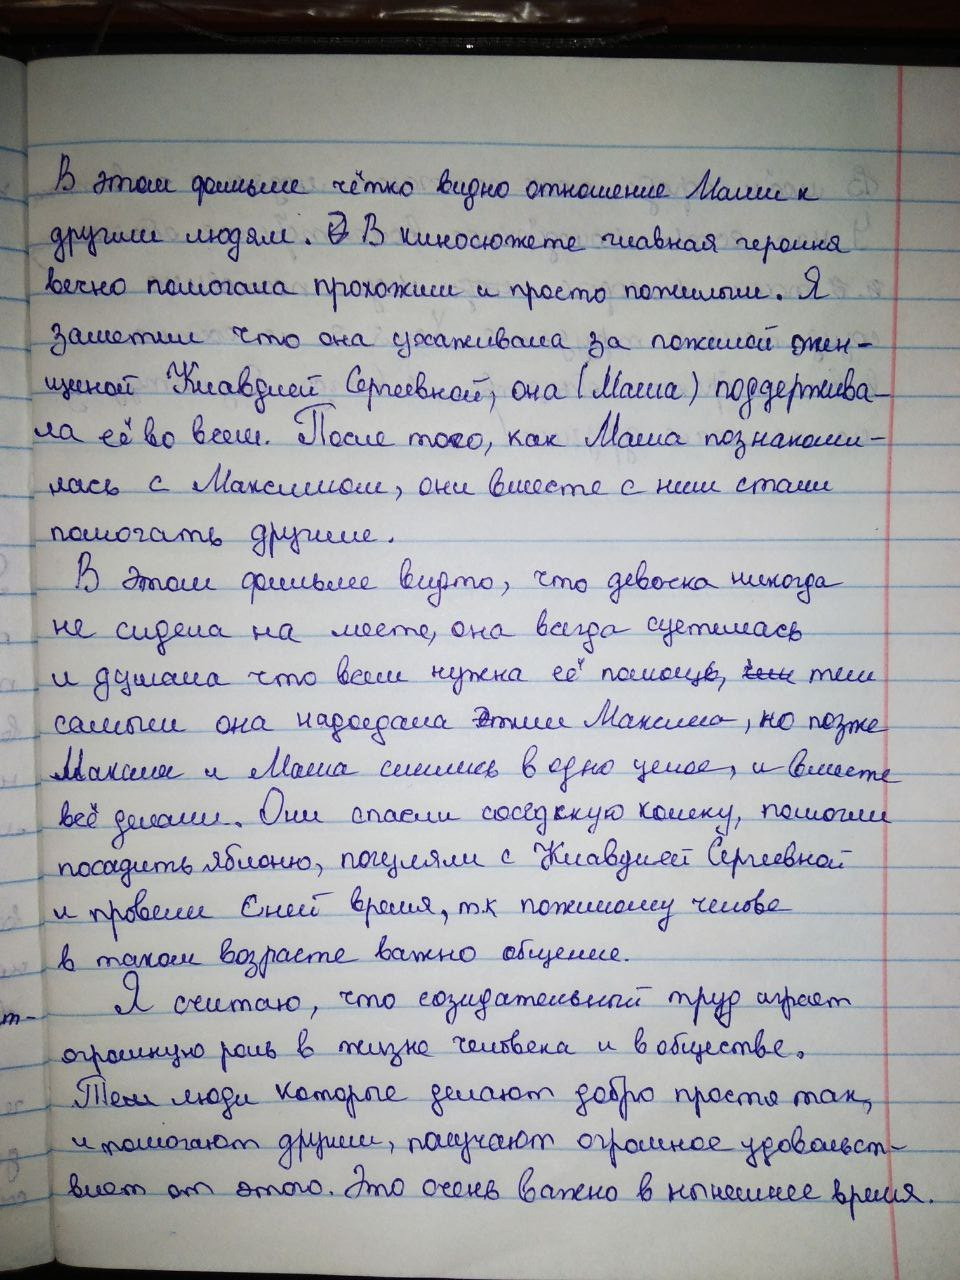 В этом фильме чётко видно отношение Маши к
другим людям. В киносюжете главная героиня
вечно помогала прохожим и просто пожилым. Я
заметил что она ухаживала за пожилой жен-
щиной Клавдией Сергеевной, она (Маша) поддержива-
ла её во всем. После того, как Маша познакоми-
лась с Максимом, они вместе с ним стали
помогать другим.
В этом фильме видто, что девочка никогда
не сидела на месте, она всегда суетилась
и думала что всем нужна её помощь, тем
самым она надоедала этим Максима, но позже
Максим и Маша слились в одно целое, и вместе
всё делали. Они спасли соседскую кошку, помогли
посадить яблоню, погуляли с Клавдией Сергеевной
и провели с ней время, т.к пожилому челове
в таком возрасте важно общение.
Я считаю, что созидательный труд играет
огромную роль в жизне человека и в обществе.
Тем люди которые делают добро простя так,
и помогают другим, получают огромное удовольст-
вием от этого. Это очень важно в нынешнее время.
т-